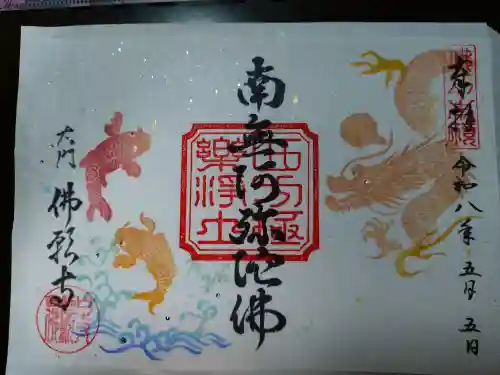 奉拝
令和八年五月五日
南無阿弥陀佛
西方極
楽浄土
大門
佛願寺